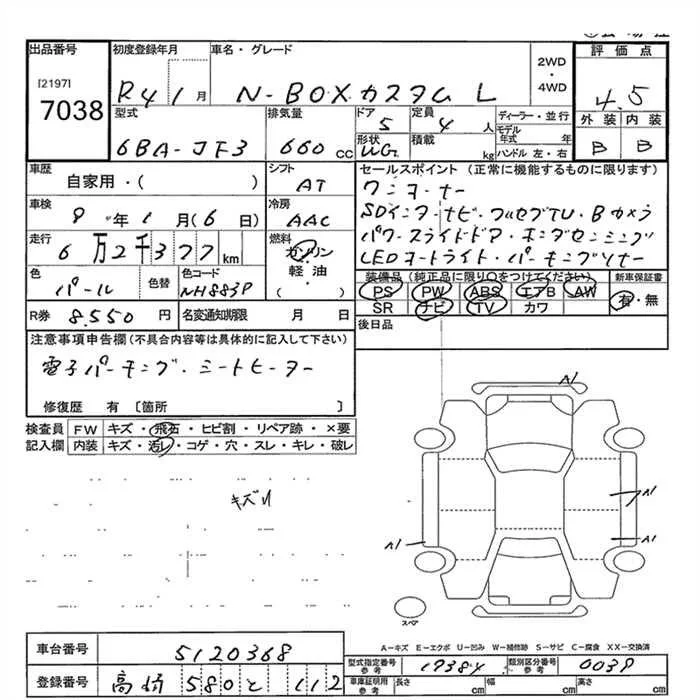 出品番号
[2197]
7038
初度登録年月
R4 1 月
車名・グレード
N-BOXカスタム L
2WD
・
4WD
評価点
4.5
外装 内装
B B
型式
6BA-JF3
排気量
660 CC
ドア
5
定員
4 人
形状
積載
kg
ディーラー・並行
モデル年式 年
ハンドル 左・右
車歴
自家用・( )
シフト
AT
セールスポイント (正常に機能するものに限ります)
ワンオーナー
SDインターナビ・フルセグTV・Bカメラ
パワースライドドア・ホンダセンシング
LEDオートライト・パーキングソナー
車検
9年1月(6日)
冷房
AAC
走行
6万2千377km
燃料
ガソリン
軽油
( )
色
パール
色替
色コード
NH883P
R券 8.550 円
名変通知期限 月 日
装備品 (純正品に限り○をつけてください)
新車保証書
PS PW ABS エアB AW
有・無
SR ナビ TV カワ
後日品
注意事項申告欄 (不具合内容等は具体的に記入して下さい)
電子パーキング・シートヒーター
修復歴 有 〔箇所 〕
検査員記入欄
FW キズ・飛石・ヒビ割・リペア跡・×要
内装 キズ・汚レ・コゲ・穴・スレ・キレ・破レ
A1
A1
A1
A1
スペア
A-キズ E-エクボ U-凹み W-補修跡 S-サビ C-腐食 XX-交換済
車台番号 5120368
登録番号 高崎 580 と 112
型式指定番号 参考 19384
類別区分番号 参考 0039
車庫証明用 参考
長さ cm
幅 cm
高さ cm